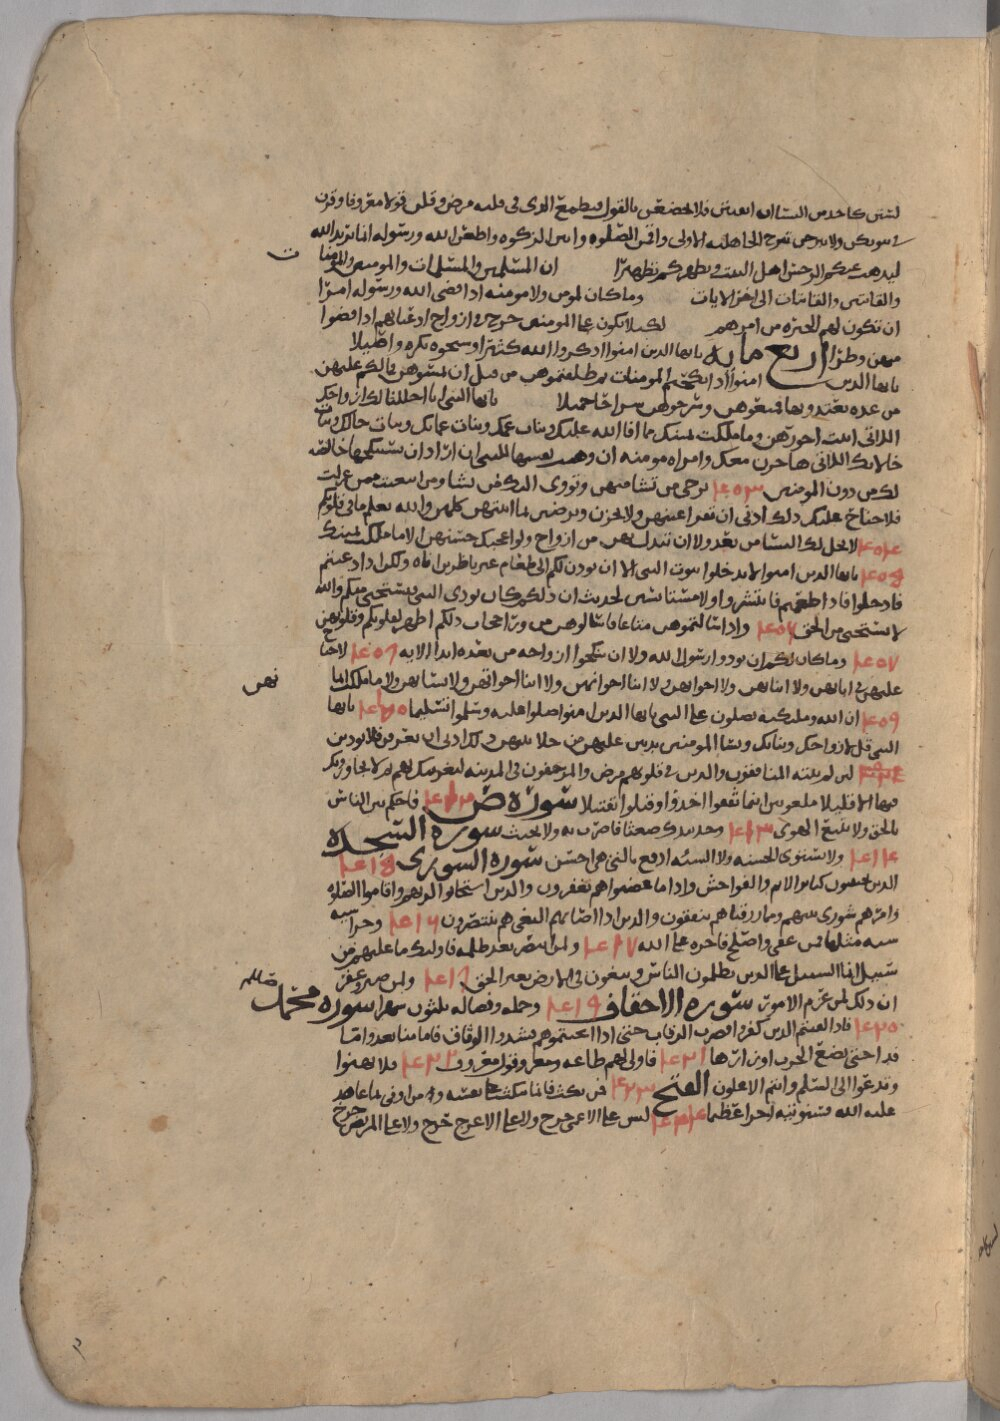 لستن كاحد من النسا ان اتقيتن فلا تخضعن بالقول فيطمع الذى فى قلبه مرض وقلن قولا معروفا وقرن
فى بيوتكن ولا تبرجن تبرج الجاهلية الاولى واقمن الصلوه واتين الزكوه واطعن الله ورسوله انما يريد الله
ليذهب عنكم الرجس اهل البيت ويطهركم تطهيرا ان المسلمين والمسلمات والمومنين والمومنات
والقانتين والقانتات الى اخر الايات وما كان لمومن ولا مومنه اذا قضى الله ورسوله امرا
ان تكون لهم الخيره من امرهم لكيلا يكون على المومنين حرج فى ازواج ادعيائهم اذا قضوا
منهن وطرا اربع مايه يايها الذين امنوا اذكروا الله كثيرا وسبحوه بكره واصيلا
يايها الذين امنوا اذا نكحتم المومنات ثم طلقتموهن من قبل ان تمسوهن فما لكم عليهن
من عده تعتدونها فمتعوهن وسرحوهن سراحا جميلا يايها النبى انا احللنا لك ازواجك
اللاتى اتيت اجورهن وما ملكت يمينك مما افا الله عليك وبنات عمك وبنات عماتك وبنات خالك وبنات
خالاتك اللاتى هاجرن معك وامراه مومنه ان وهبت نفسها للنبى ان اراد ان يستنكحها خالصه
لك من دون المومنين ٤٠٣ ترجى من تشا منهن وتووى اليك من تشا ومن ابتغيت ممن عزلت
فلا جناح عليك ذلك ادنى ان تقر اعينهن ولا يحزن ويرضين بما اتيتهن كلهن والله يعلم ما فى قلوبكم
٤٠٤ لا يحل لك النسا من بعد ولا ان تبدل بهن من ازواج ولو اعجبك حسنهن الا ما ملكت يمينك
٤٠٥ يايها الذين امنوا لا تدخلوا بيوت النبى الا ان يوذن لكم الى طعام غير ناظرين اناه ولكن اذا دعيتم
فادخلوا فاذا طعمتم فانتشروا ولا مستانسين لحديث ان ذلكم كان يوذى النبى فيستحيى منكم والله
لا يستحيى من الحق ٤٠٦ واذا سالتموهن متاعا فاسالوهن من ورا حجاب ذلكم اطهر لقلوبكم وقلوبهن
٤٠٧ وما كان لكم ان توذوا رسول الله ولا ان تنكحوا ازواجه من بعده ابدا الايه لا جناح
عليهن فى ابائهن ولا ابنائهن ولا اخوانهن ولا ابنا اخوانهن ولا ابنا اخواتهن ولا نسائهن ولا ما ملكت ايما
نهن
٤٠٩ ان الله وملئكته يصلون على النبى يايها الذين امنوا صلوا عليه وسلموا تسليما يايها
النبى قل لازواجك وبناتك ونسا المومنين يدنين عليهن من جلابيبهن ذلك ادنى ان يعرفن فلا يوذين
لين لم ينته المنافقون والذين فى قلوبهم مرض والمرجفون فى المدينه لنغرينك بهم ثم لا يجاورونك
فيها الا قليلا ملعونين اينما ثقفوا اخذوا وقتلوا تقتيلا سوره ص فاحكم بين الناس
بالحق ولا تتبع الهوى ٤١٣ وخذ بيدك ضغثا فاضرب به ولا تحنث سوره السجده
٤١٤ ولا تستوى الحسنه ولا السيئه ادفع بالتى هى احسن سوره الشورى ٤١٥
الذين يجتنبون كبائر الاثم والفواحش واذا ما غضبوا هم يغفرون والذين استجابوا لربهم واقاموا الصلوه
وامرهم شورى بينهم ومما رزقناهم ينفقون والذين اذا اصابهم البغى هم ينتصرون ٤١٦ وجزا سيئه
سيئه مثلها فمن عفى واصلح فاجره على الله ٤١٧ ولمن انتصر بعد ظلمه فاوليك ما عليهم من
سبيل انما السبيل على الذين يظلمون الناس ويبغون فى الارض بغير الحق ٤١٨ ولمن صبر وغفر
ان ذلك لمن عزم الامور سوره الاحقاف ٤١٩ وحمله وفصاله ثلثون شهرا سوره محمد صلعم
٤٢٠ فاذا لقيتم الذين كفروا فضرب الرقاب حتى اذا اثخنتموهم فشدوا الوثاق فاما منا بعد واما
فدا حتى تضع الحرب اوزارها ٤٢١ فاولى لهم طاعه وقول معروف ٤٢٢ فلا تهنوا
وتدعوا الى السلم وانتم الاعلون الفتح ٤٢٣ فمن نكث فانما ينكث على نفسه ومن اوفى بما عاهد
عليه الله فسنوتيه اجرا عظيما ٤٢٤ ليس على الاعمى حرج ولا على الاعرج حرج ولا على المريض حرج